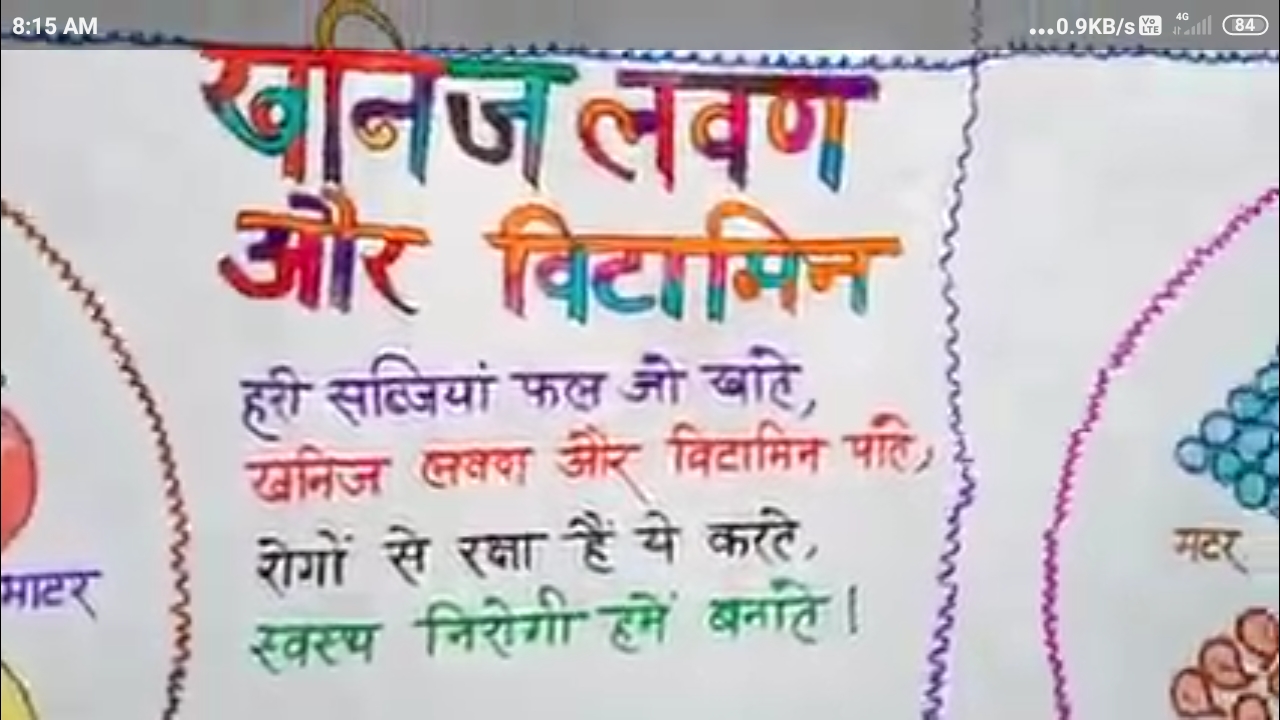 8:15 AM
...0.9KB/s
Vo LTE
4G
84
खनिज लवण
और विटामिन
हरी सब्जियां फल जो खाते,
खनिज लवण और विटामिन पाते,
रोगों से रक्षा हैं ये करते,
स्वस्थ निरोगी हमें बनाते।
माटर
मटर